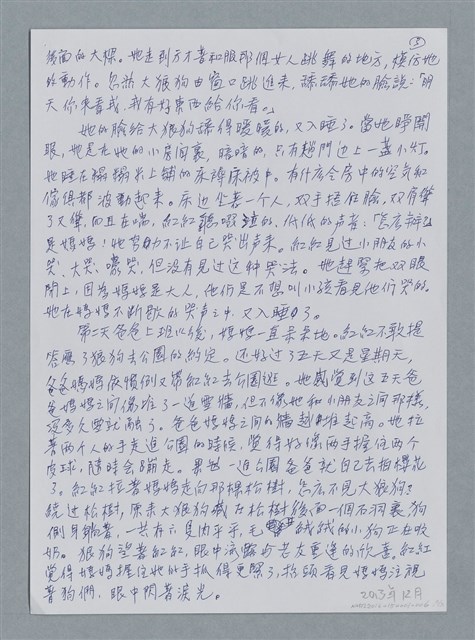 ③
结面的大樑。她走到方才喜和服那個女人跳舞的地方,模仿她
的動作。忽然大狼狗由窗口跳進來,舔舔她的臉說:「明
天你來看我,我有好東西給你看。」
她的臉給大狼狗舔得暖暖的,又入睡了。當她睁開
眼,她是在她的小房间裏,暗暗的,只有趟門边上一盏小灯。
她睡在榻榻米上铺的床褥床被中。有什麼令房中的空氣和
傢俱都波動起來。床边坐着一个人,双手捂住臉,双肩聳
了又聳,而且在喘,紅紅聽啜泣的、低低的声音:「怎麼辦?」
是媽媽!她努力不让自己哭出声來。紅紅見过小朋友的小
哭、大哭、嚎哭,但没有見过这种哭法。她趕緊把双眼
閉上,因為媽媽是大人,他们是不想叫小孩看見他们哭的。
她在媽媽不断歇的哭声之中,又入睡了。
第二天爸爸上班以後,媽媽一直呆呆地。紅紅不敢提
答應了狼狗去公園的約定。还好过了五天又是星期天,
爸爸媽媽依慣例又帶紅紅去公園逛。她感覺到这五天爸
爸媽媽之间像堆了一道雪牆,但不像她和小朋友之间那樣,
没多久雪就融了。爸爸媽媽之间的牆越堆越高。她拉
著两个人的手走進公園的時候,覺得好像两手握住两个
皮球,随時会蹦走。果然一進公園爸爸就自己去拍櫻花
了。紅紅拉著媽媽走向那棵松樹,怎麼不見大狼狗?
繞过松樹,原來大狼狗藏在松樹後面一個石洞裏,狗
側身躺著,一共有六隻肉平平,毛絨絨的小狗正在吸
奶。狼狗望著紅紅,眼中流露与老友重逢的欣喜,紅紅
覺得媽媽握住她的手抓得更緊了,抬頭看見媽媽注視
着狗們,眼中閃著淚光。
2013年12月